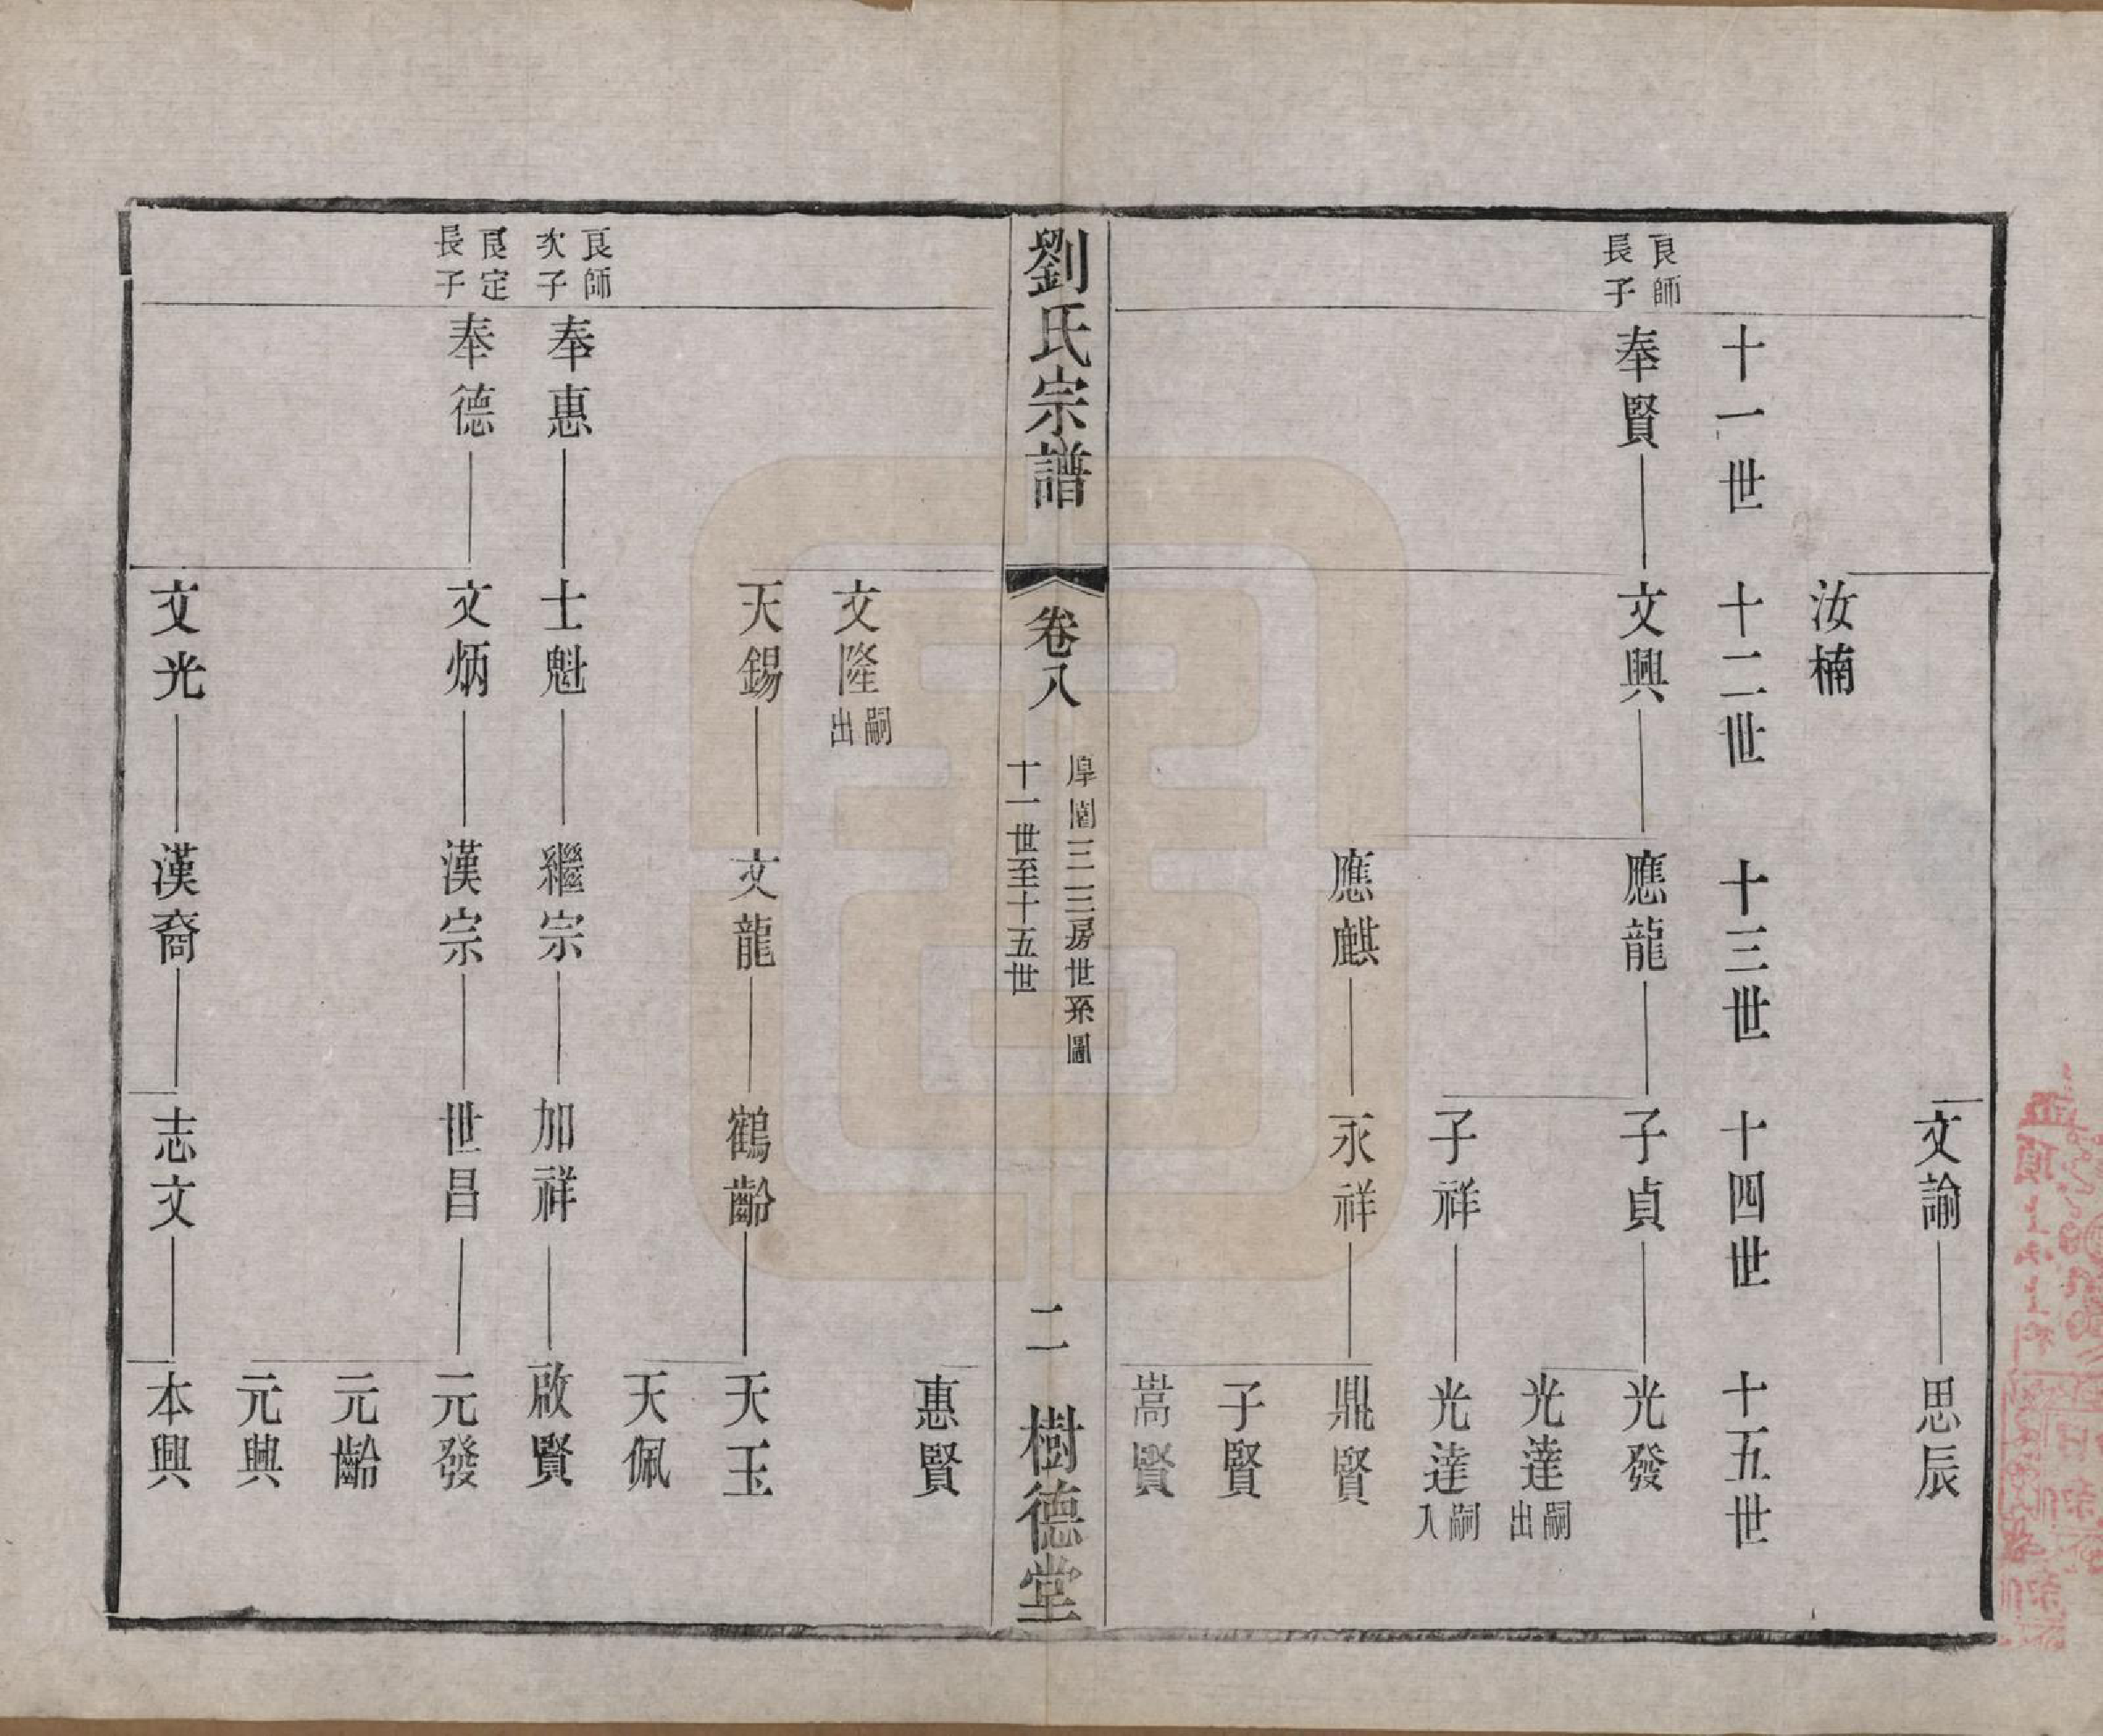 文諭 思辰
汝楠
十一世 十二世 十三世 十四世 十五世
良師長子 奉賢 文興 應龍 子貞 光發
光達 嗣出
子祥 光達 嗣入
應麒 永祥 鼎賢
子賢
嵩賢
劉氏宗譜 卷八 厚園三三房世系圖 十一世至十五世 二 樹德堂
惠賢
文隆 嗣出
天錫 文龍 鶴齡 天玉
天佩
良師次子 奉惠 士魁 繼宗 加祥 啟賢
良定長子 奉德 文炳 漢宗 世昌 元發
元齡
元興
文光 漢裔 志文 本興